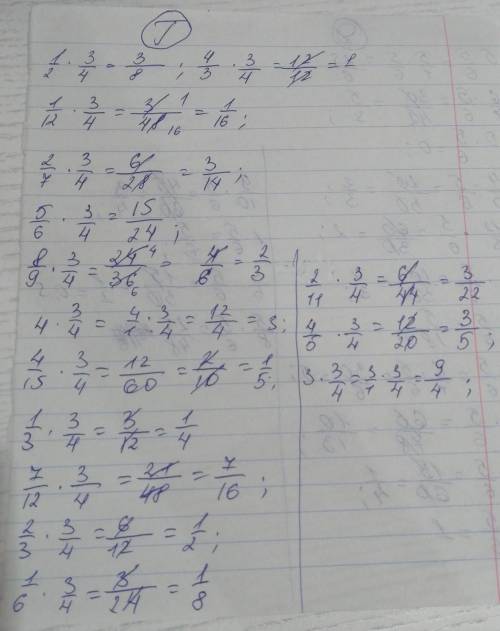 I
1/2 · 3/4 = 3/8 ; 4/3 · 3/4 = 12/12 = 1
1/12 · 3/4 = 3/48 1 16 = 1/16 ;
2/7 · 3/4 = 6/28 = 3/14 ;
5/6 · 3/4 = 15/24 ;
8/9 · 3/4 = 24/36 4 6 = 4/6 = 2/3
4 · 3/4 = 4/1 · 3/4 = 12/4 = 3 ;
4/15 · 3/4 = 12/60 = 2/10 = 1/5 ;
1/3 · 3/4 = 3/12 = 1/4
7/12 · 3/4 = 21/48 = 7/16 ;
2/3 · 3/4 = 6/12 = 1/2 ;
1/6 · 3/4 = 3/24 = 1/8
2/11 · 3/4 = 6/44 = 3/22
4/5 · 3/4 = 12/20 = 3/5 ;
3 · 3/4 = 3/1 · 3/4 = 9/4 ;